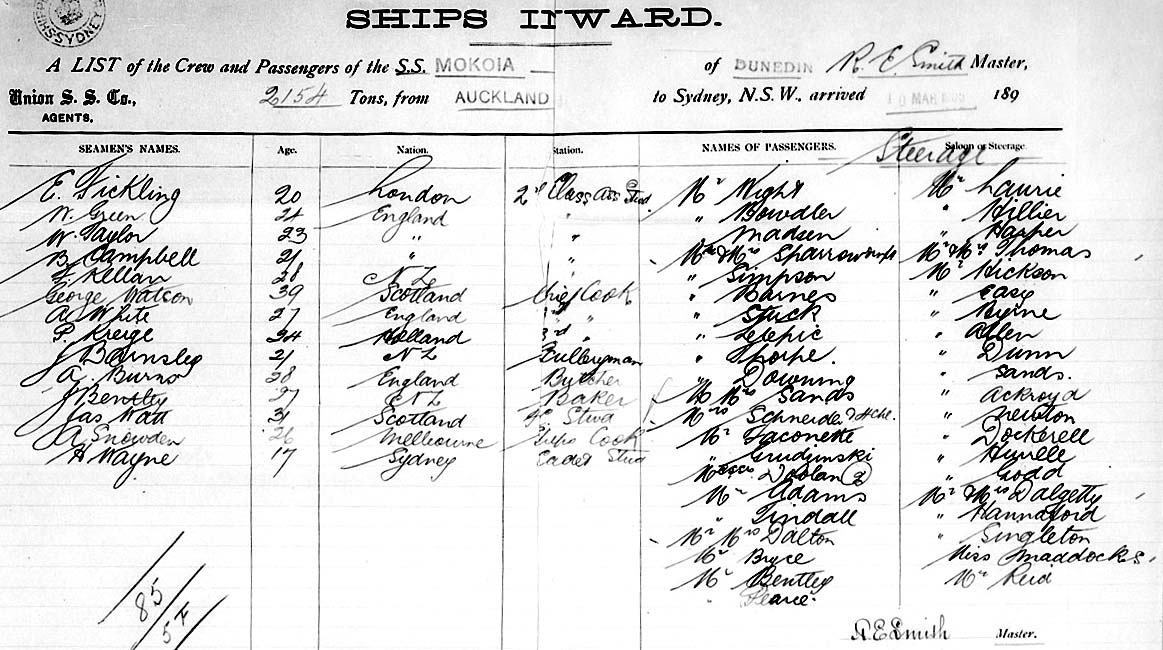 SYDNEY
SHIPS INWARD.
A LIST of the Crew and Passengers of the S.S. MOKOIA of DUNEDIN R. E. Smith Master,
Union S. S. Co., 2154 Tons, from AUCKLAND to Sydney, N.S.W., arrived 10 MAR 189
AGENTS.
SEAMEN'S NAMES. Age. Nation. Station. NAMES OF PASSENGERS. Saloon or Steerage.
Steerage
E. Fickling 20 London 2nd Class Ass Stwd. Mr Wight Mr Laurie
W. Green 21 England " " Bowdler " Hillier
W. Taylor 23 " " Madsen " Harper
B. Campbell 21 " " Mr & Mrs Mr & Mrs Thomas
Kellan 28 N Z " " Simpson Mr Hickson
George Watson 39 Scotland Chief Cook " Barnes " Easy
A. White 27 England " " Stuck " Byrne
P. 34 Holland 3rd " " " Allen
J Barnsley 21 N Z " Thorpe. " Dunn
A. Burns 28 England Butcher " Downing " Sands.
J Bentley 27 N Z Baker Mr Mrs Sands " Ackroyd
Jas Watt 31 Scotland Stwd Mrs Schneider & " Newton
A. Snowden 26 Melbourne Ships Cook Mr Faconette " Dockerell
H Wayne 17 Sydney Cadet Stwd " "
Doolan 2 "
Mr Adams Mr & Mrs Dalgetty
" Tindall " Hannaford
Mr Mrs Dalton " Singleton
Mr Bryce Miss Maddocks
Mr Bentley Mr Reid
" Pearce.
85/57
R. E. Smith Master.